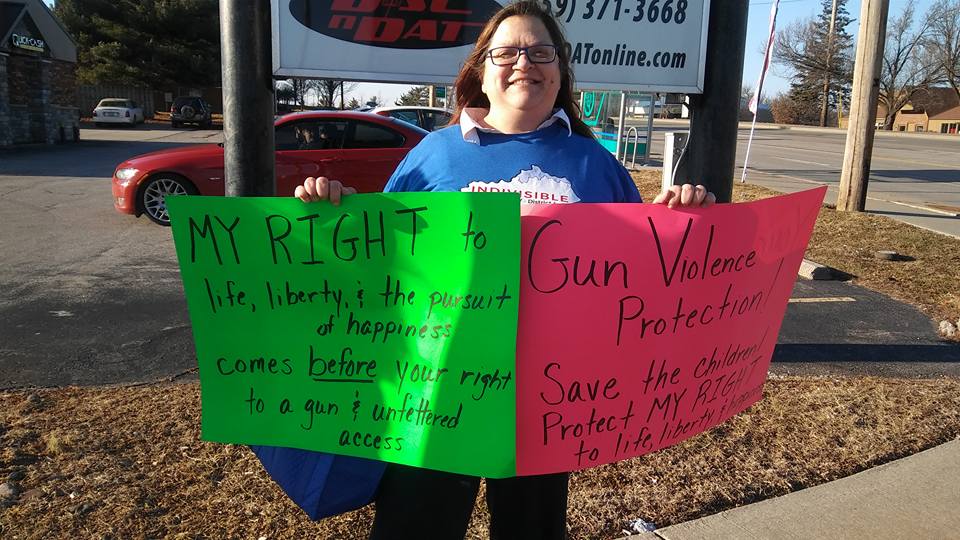 QUIK CASH
DAC
n DAT
9) 371-3668
DATonline.com
INDIVISIBLE
District
MY RIGHT to
life, liberty, & the pursuit
of happiness
comes before your right
to a gun & unfettered
access
Gun Violence
Protection!
Save the children!
Protect MY RIGHT
to life, liberty & happiness